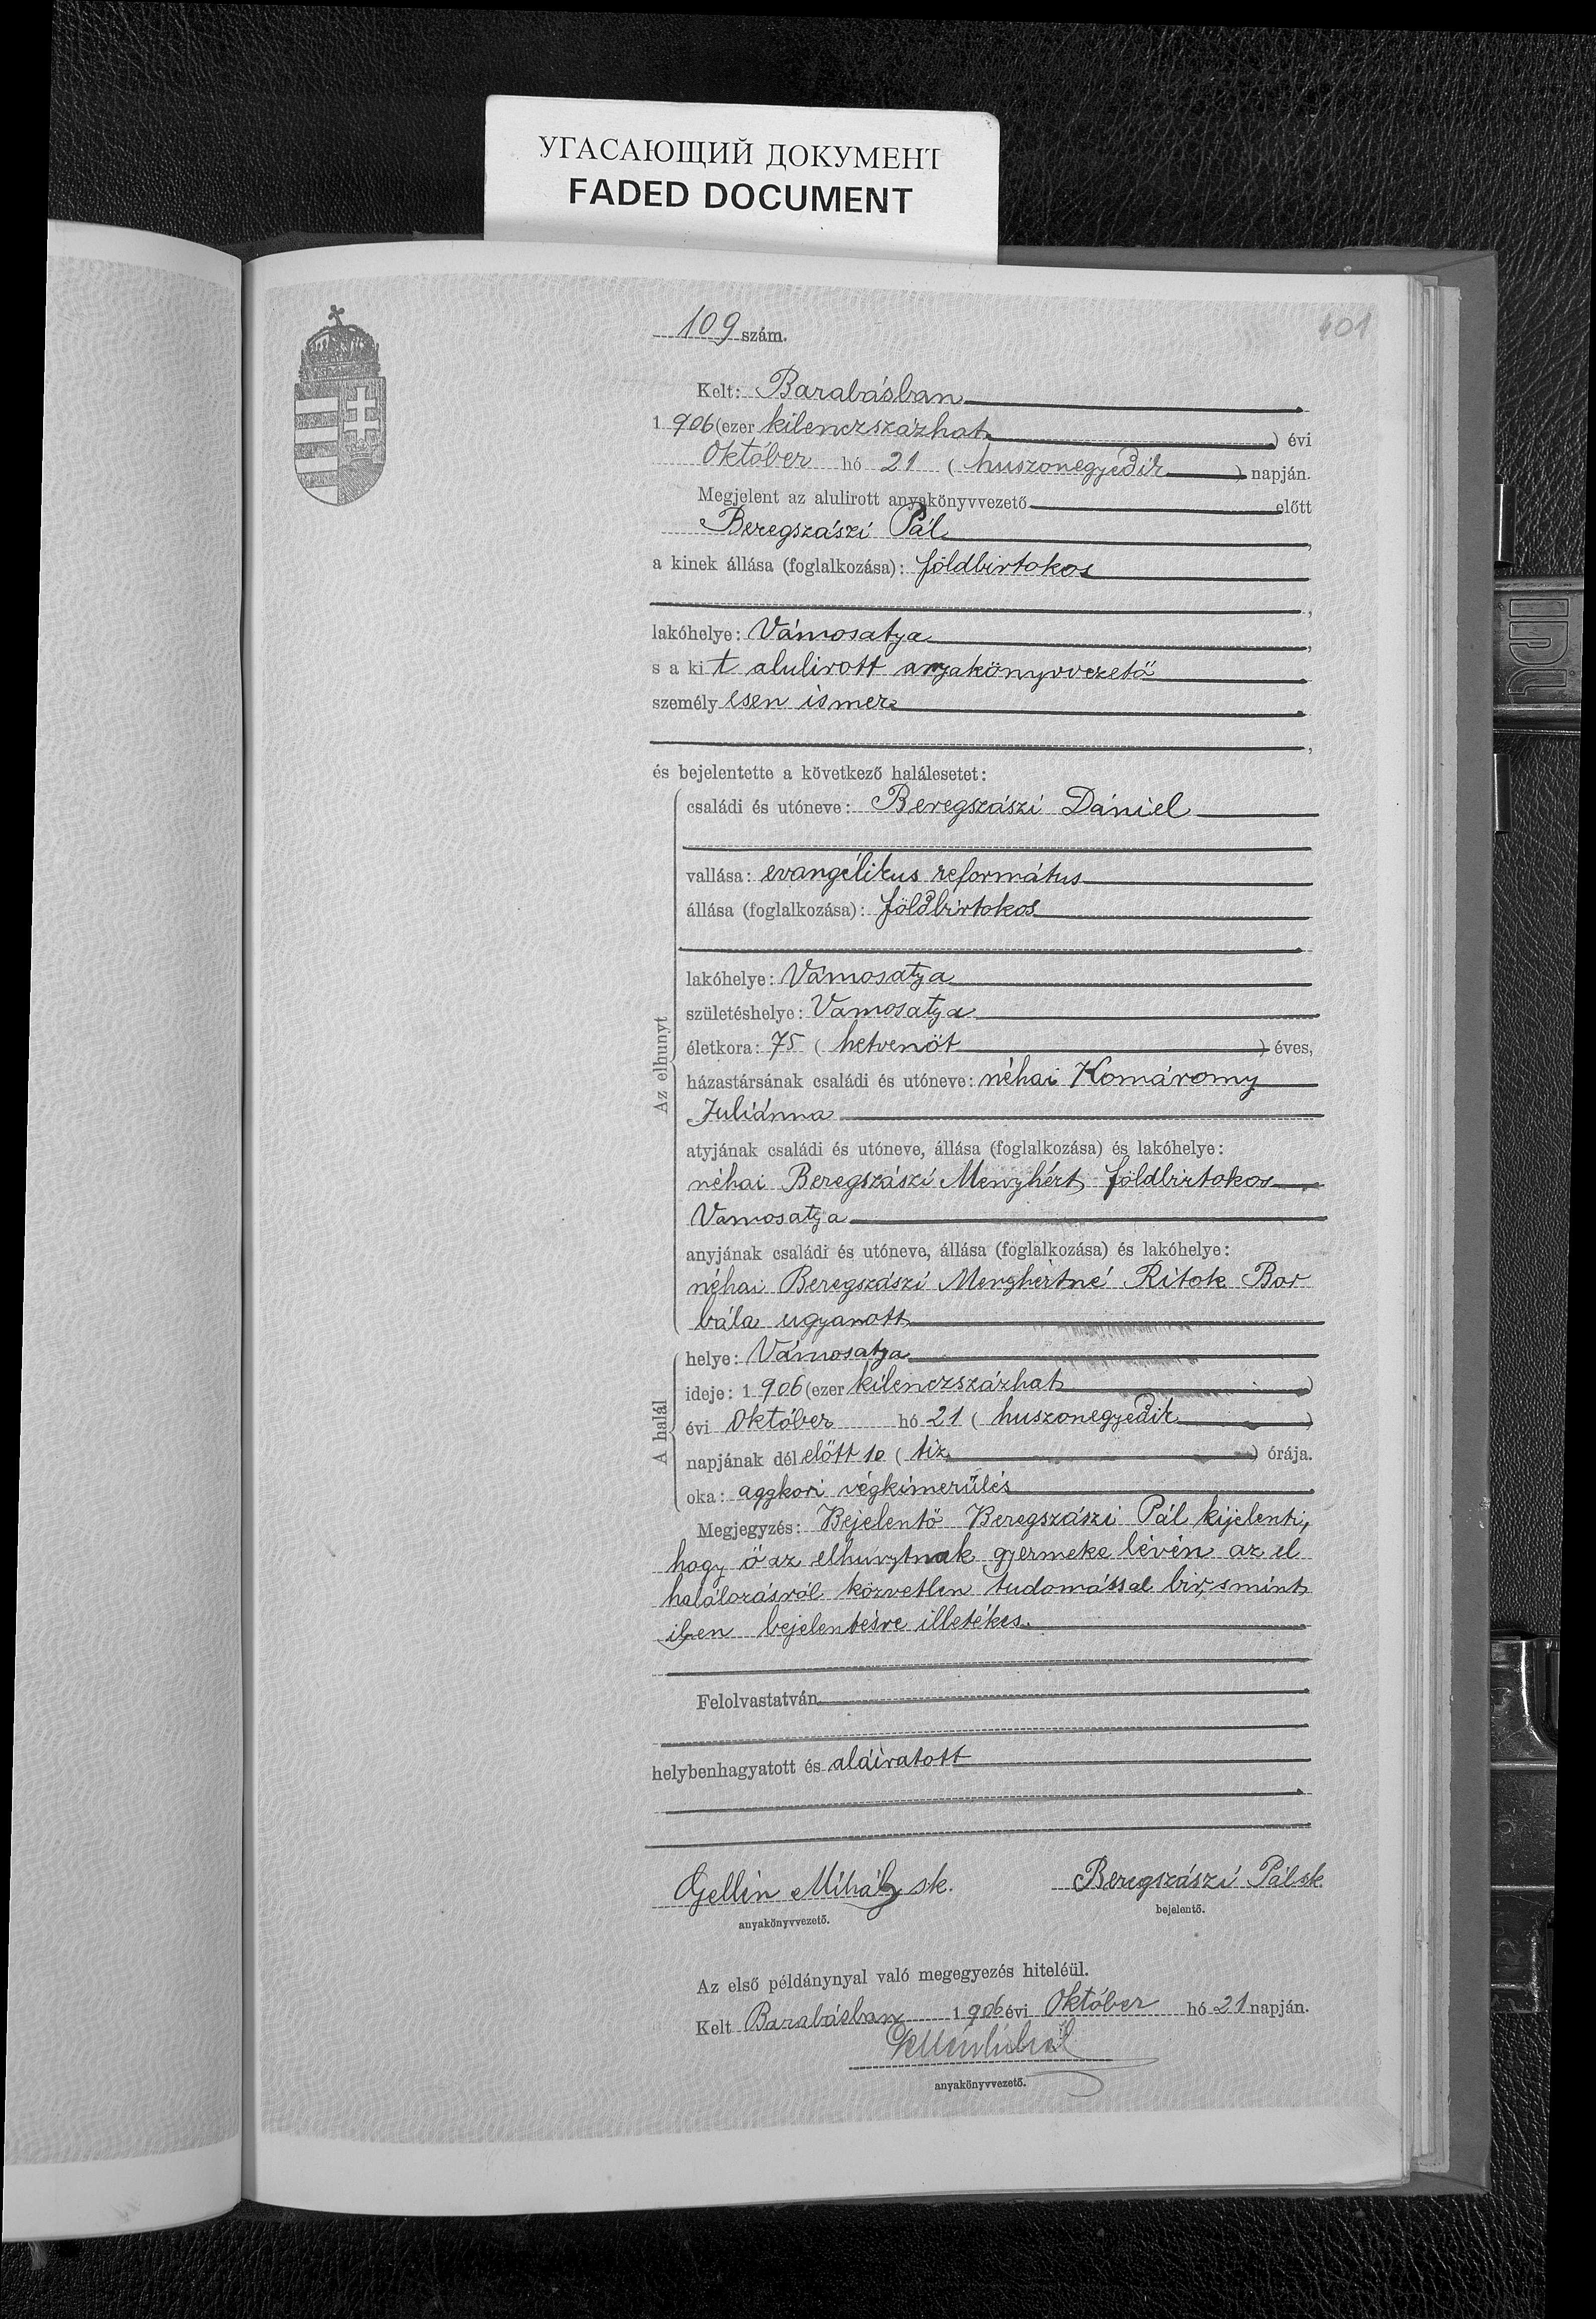 УГАСАЮЩИЙ ДОКУМЕНТ
FADED DOCUMENT
401
109 szám.
Kelt: Barabásban
1 906 (ezer kilenczszázhat ) évi
Október hó 21 ( huszonegyedik ) napján.
Megjelent az alulirott anyakönyvvezető előtt
Beregszászi Pál,
a kinek állása (foglalkozása): földbirtokos
,
lakóhelye: Vámosatya,
s a ki t alulirott anyakönyvvezető
személy esen ismer
,
és bejelentette a következő halálesetet:
Az elhunyt
családi és utóneve: Beregszászi Dániel
vallása: evangélikus református
állása (foglalkozása): földbirtokos
lakóhelye: Vámosatya
születéshelye: Vamosatya
életkora: 75 ( hetvenöt ) éves,
házastársának családi és utóneve: néhai Komáromy
Juliánna
atyjának családi és utóneve, állása (foglalkozása) és lakóhelye:
néhai Beregszászi Menyhért földbirtokos
Vamosatya
anyjának családi és utóneve, állása (foglalkozása) és lakóhelye:
néhai Beregszászi Menyhértné Ritok Bor
bála ugyanott
A halál
helye: Vámosatya
ideje: 1 906 (ezer kilenczszázhat )
évi Október hó 21 ( huszonegyedik )
napjának dél előtt 10 ( tiz ) órája.
oka: aggkori végkimerülés
Megjegyzés: Bejelentő Beregszászi Pál kijelenti,
hogy ő az elhunytnak gyermeke lévén az el
halálozásról közvetlen tudomással bir, s mint
ilyen bejelentésre illetékes.
Felolvastatván
helybenhagyatott és aláiratott
Gellén Mihály sk. Beregszászi Pál sk.
anyakönyvvezető. bejelentő.
Az első példánynyal való megegyezés hiteléül.
Kelt Barabásban 1 906 évi Október hó 21 napján.
anyakönyvvezető.